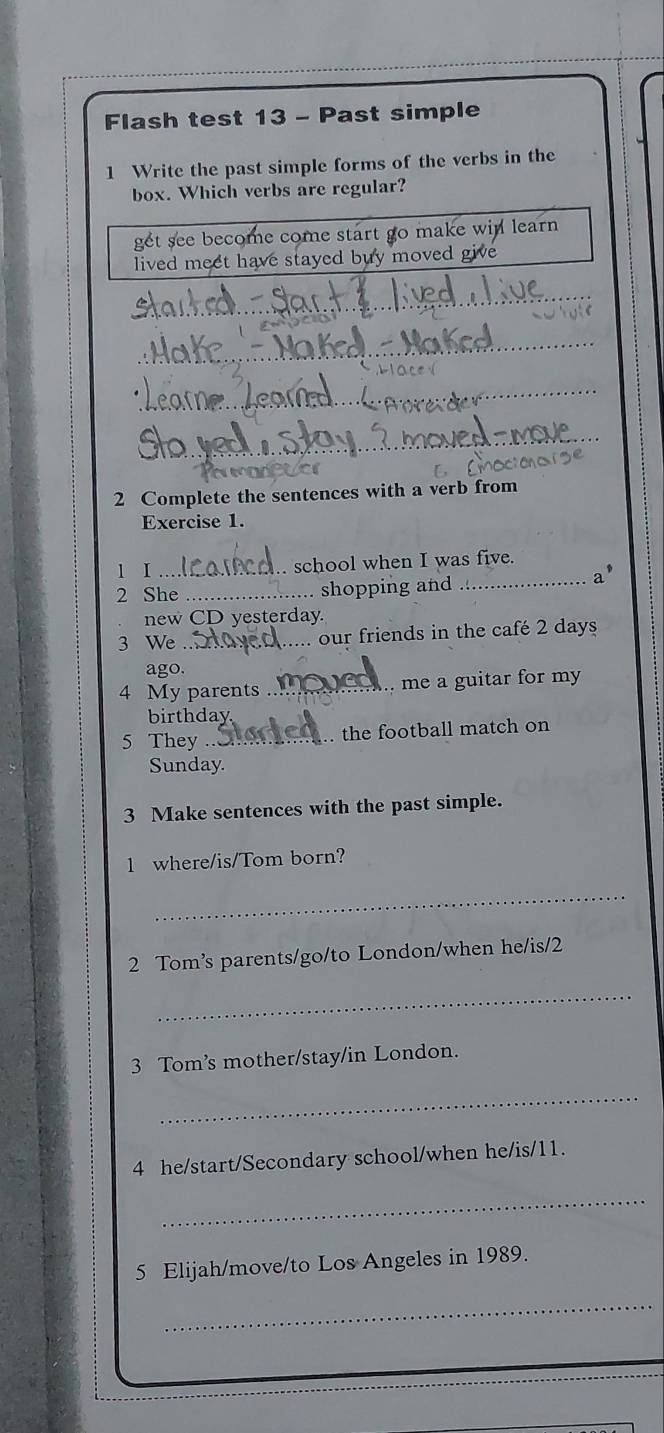 Flash test 13 - Past simple
1 Write the past simple forms of the verbs in the
box. Which verbs are regular?
get see become come start go make win learn
lived meet have stayed buy moved give
started - start lived, live
Make - Maked - Maked
Learne Learned
Stayed, stay moved-move
2 Complete the sentences with a verb from
Exercise 1.
1 I ....learned.... school when I was five.
2 She .................... shopping and .................... a
new CD yesterday.
3 We ..Stayed..... our friends in the café 2 days
ago.
4 My parents ....moved.... me a guitar for my
birthday.
5 They ..Started.. the football match on
Sunday.
3 Make sentences with the past simple.
1 where/is/Tom born?
2 Tom's parents/go/to London/when he/is/2
3 Tom's mother/stay/in London.
4 he/start/Secondary school/when he/is/11.
5 Elijah/move/to Los Angeles in 1989.